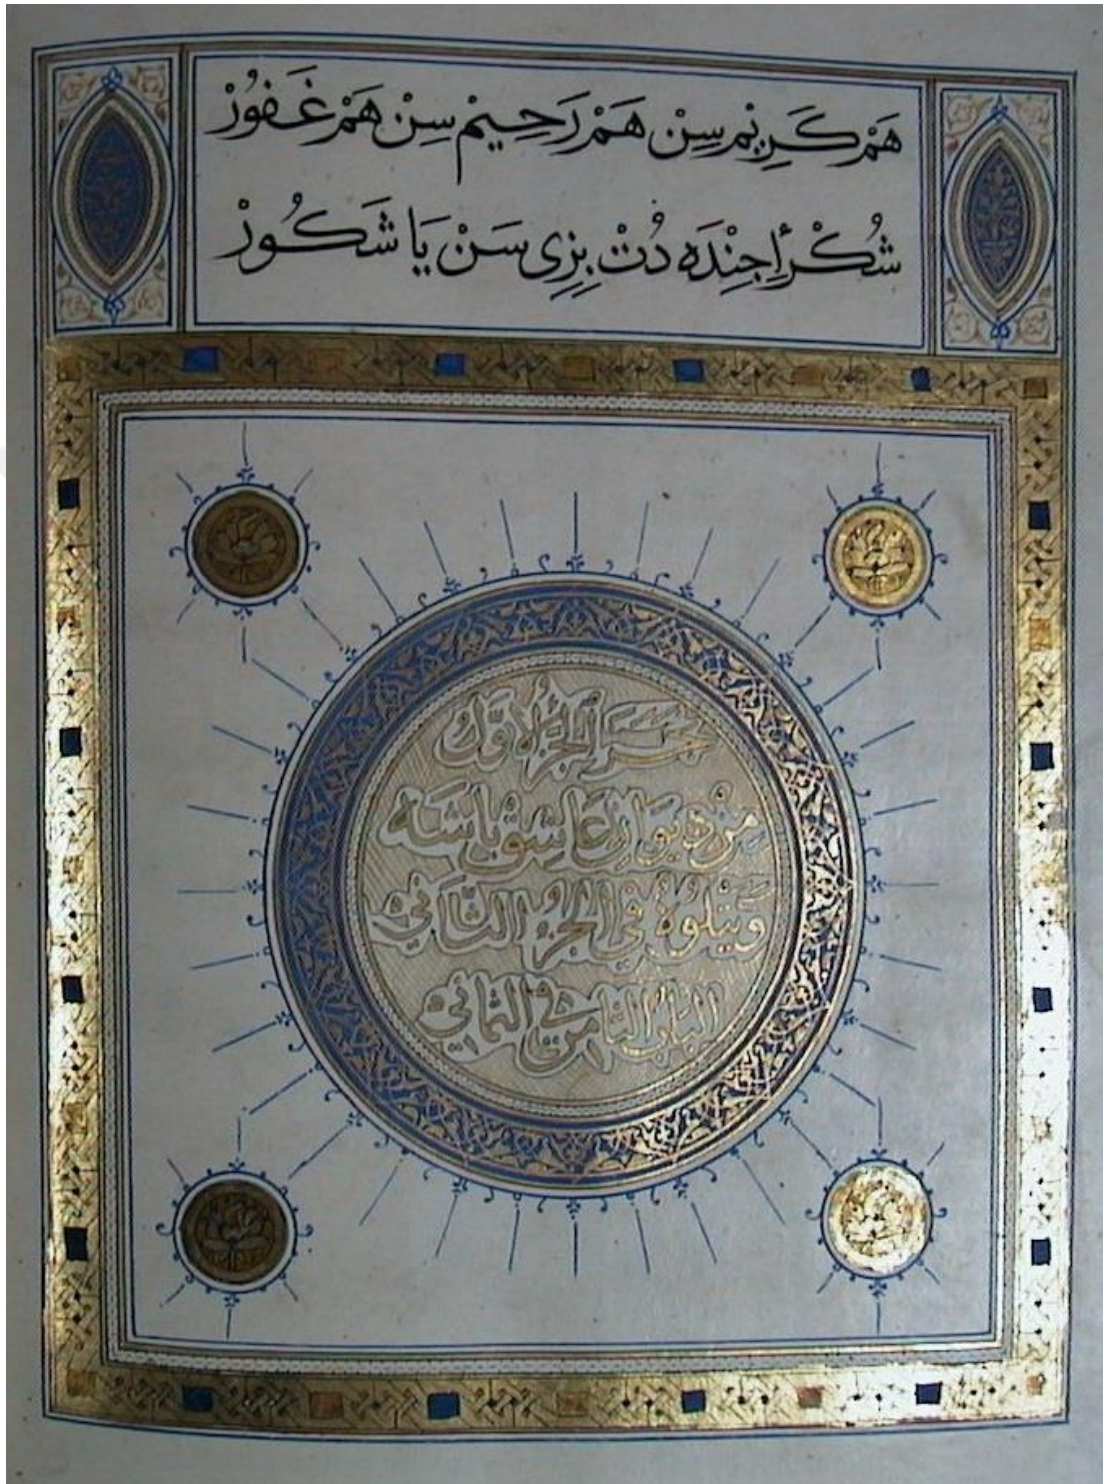 هَمْ كَرِيْم سِنْ هَمْ رَحِيْم سِنْ هَمْ غَفُورْ
شُكْرْ اِجِنْدَه دُتْ بِزِى سَنْ يَا شَكُورْ
الجزء الأوّل
مِنْ ديوان عاشِقْ باشَه
وَيَتْلُوهُ فِي الجزء الثّاني
الباب الثامن في الثماني